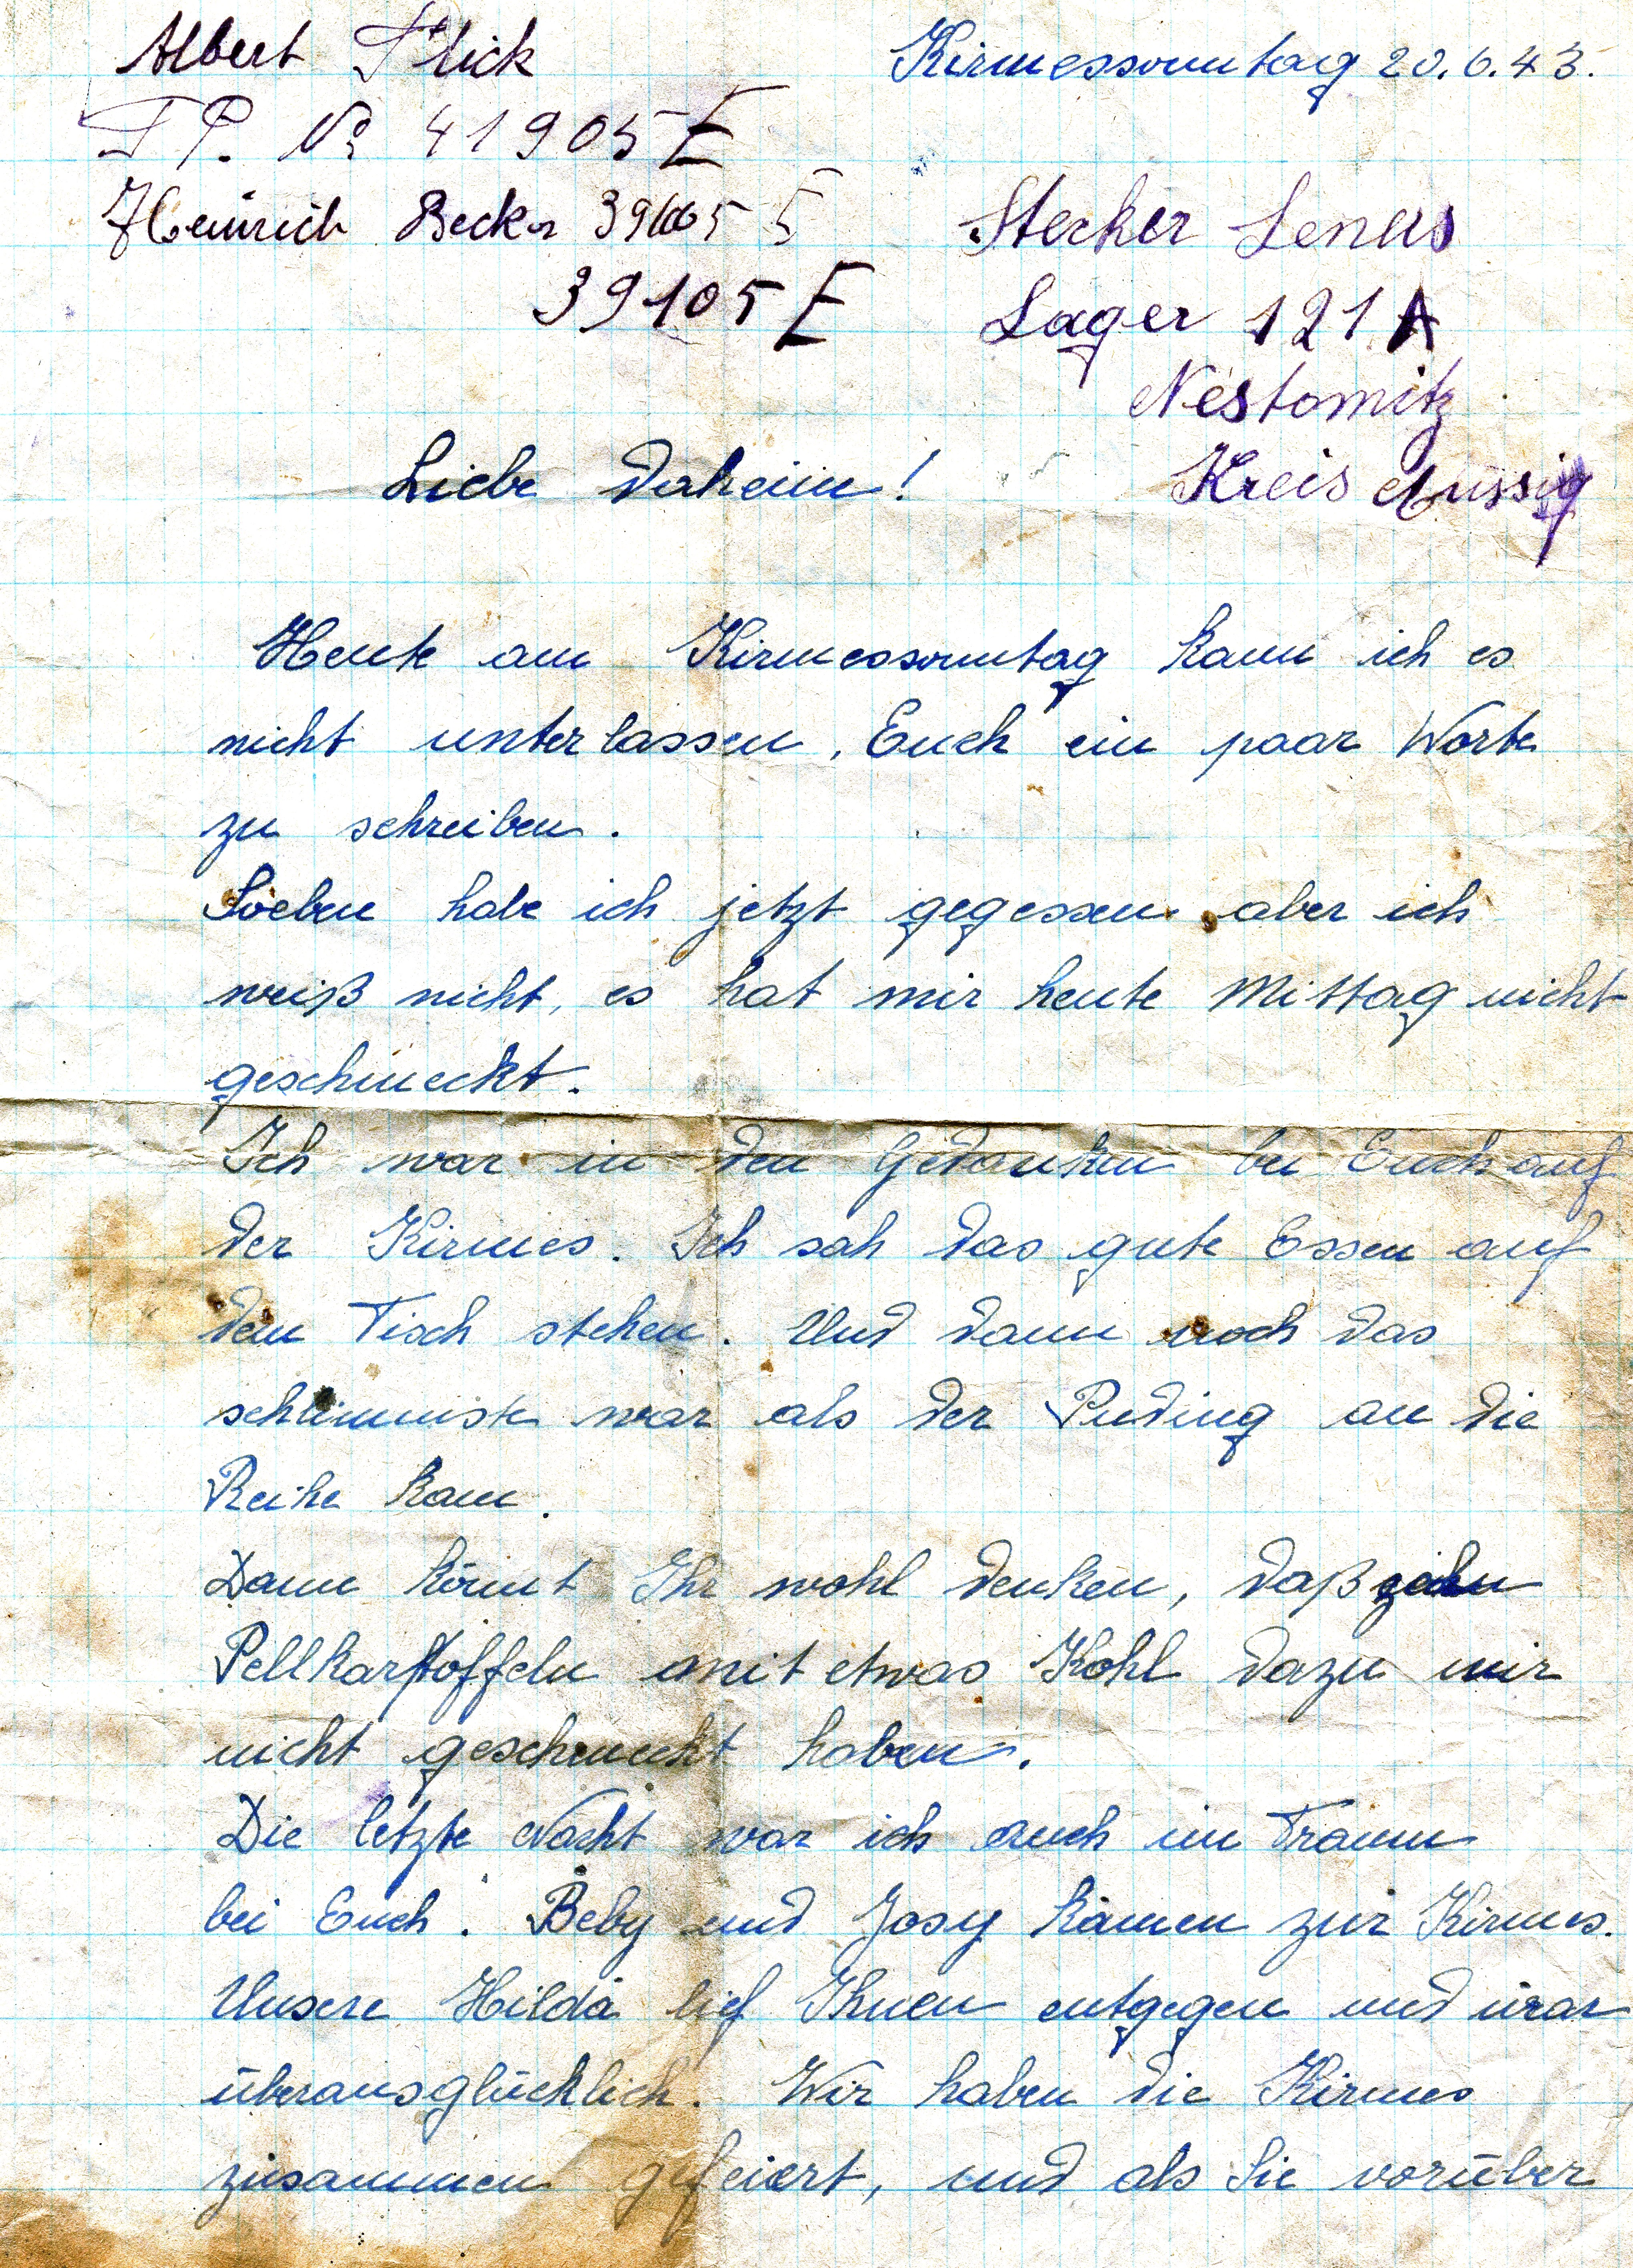 Albert Flick
Kirmessonntag 20.6.43.
F P. No 41905 E
Heinrich Becker 39105 E
39105 E
Stecker Lenus
Lager 121 A
Nestomitz
Kreis Aussig
Liebe Daheim!
Heute am Kirmessonntag kann ich es
nicht unterlassen, Euch ein paar Worte
zu schreiben.
Soeben habe ich jetzt gegessen aber ich
weiß nicht, es hat mir heute Mittag nicht
geschmeckt.
Ich war in den Gedanken bei Euch auf
der Kirmes. Ich sah das gute Essen auf
dem Tisch stehen. Und dann noch das
schlimmste war als der Puding an die
Reihe kam.
Dann könnt Ihr wohl denken, daß
Pellkartoffeln mit etwas Kohl dazu mir
nicht geschmeckt haben.
Die letzte Nacht war ich auch im Traum
bei Euch. Beby und Josy kamen zur Kirmes.
Unsere Hilda lief Ihnen entgegen und war
überausglücklich. Wir haben die Kirmes
zusammen gefeiert, und als Sie vorüber